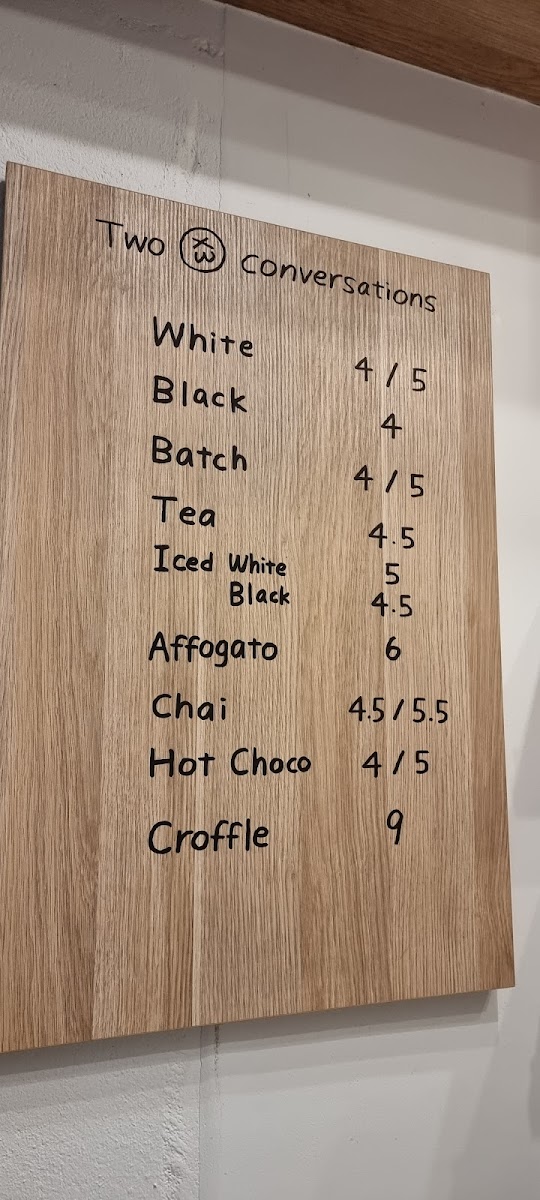 Two conversations
White 4 / 5
Black 4
Batch 4 / 5
Tea 4.5
Iced White 5
Black 4.5
Affogato 6
Chai 4.5 / 5.5
Hot Choco 4 / 5
Croffle 9